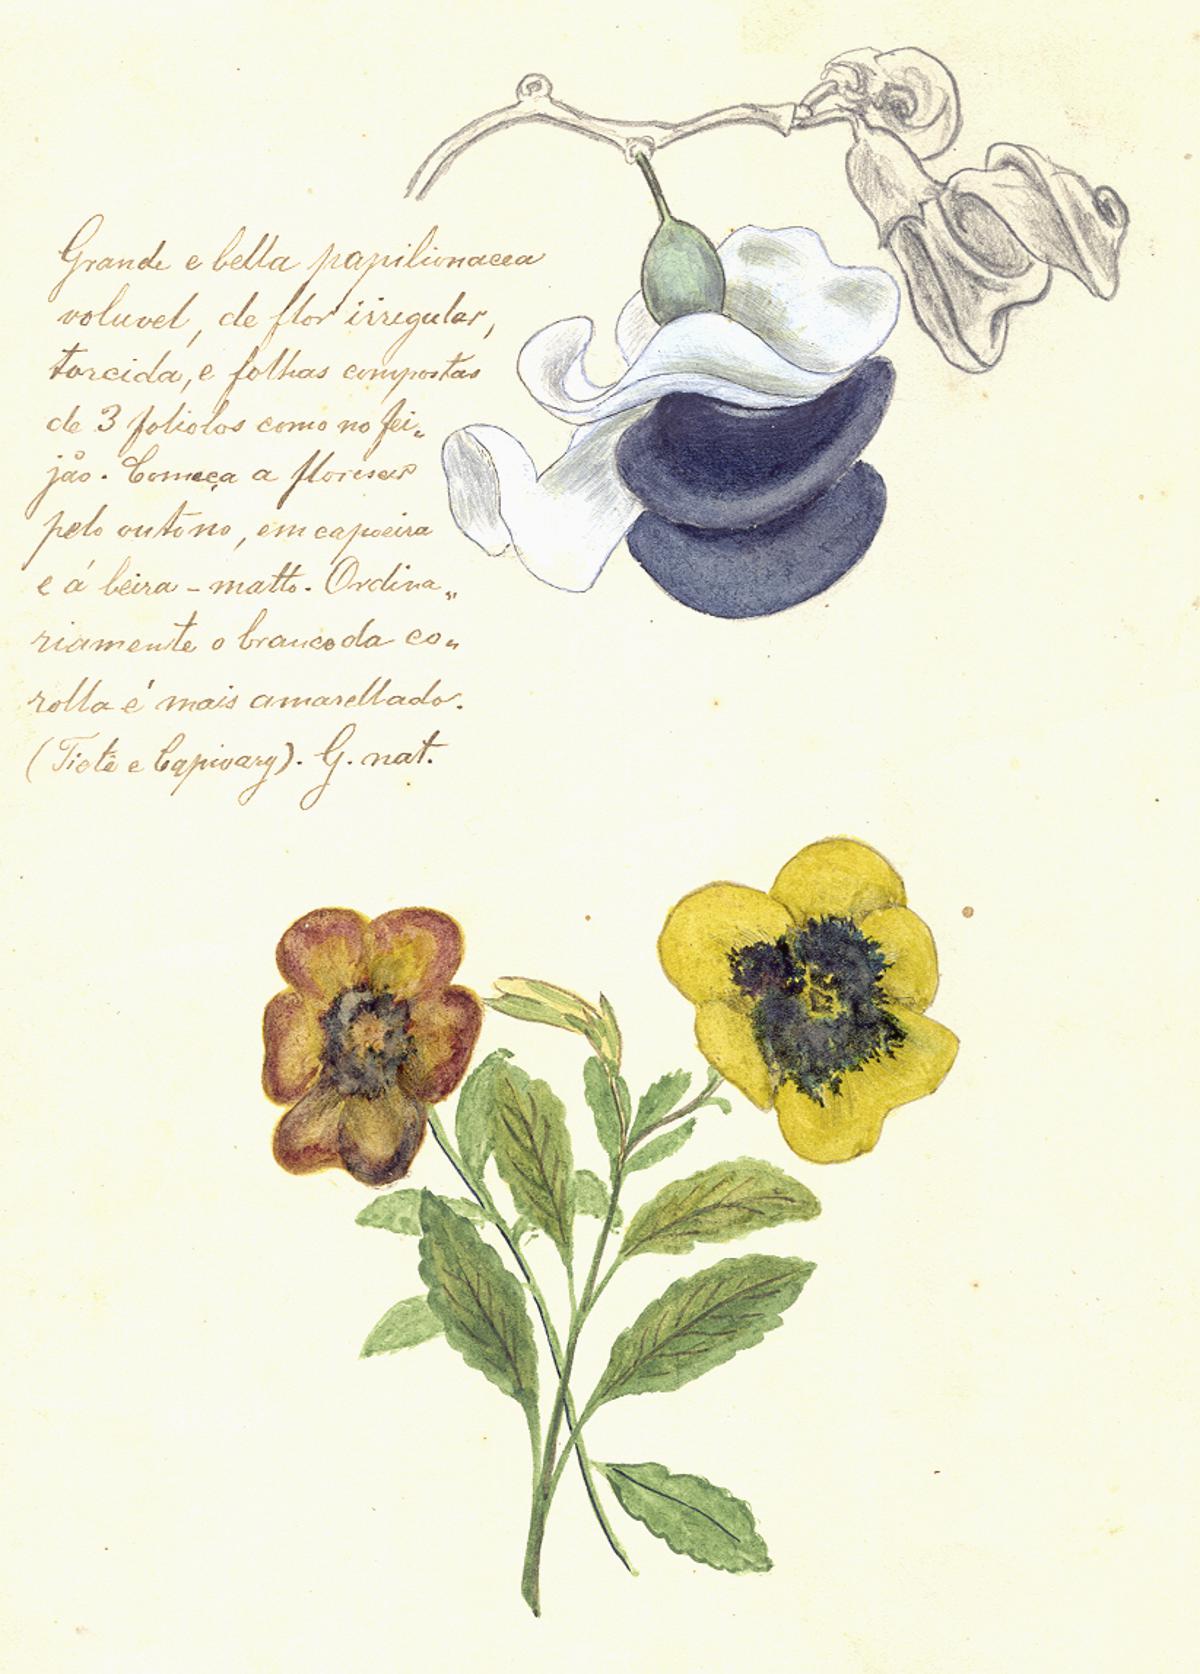 Grande e bella papilionacea
voluvel, de flor irregular,
torcida, e folhas compostas
de 3 foliolos como no fei„
jão. Começa a florescer
pelo outono, em capoeira
e á beira-matto. Ordina„
riamente o branco da co„
rolla é mais amarellado.
(Tietê e Capivary). G. nat.